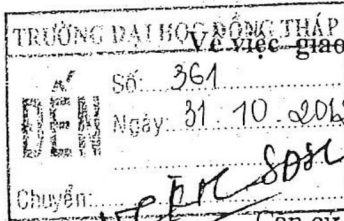 TRƯỜNG ĐẠI HỌC ĐỒNG THÁP
Về việc giao
ĐẾN
Số: 361
Ngày: 31 . 10 .
Chuyển:
Căn cứ